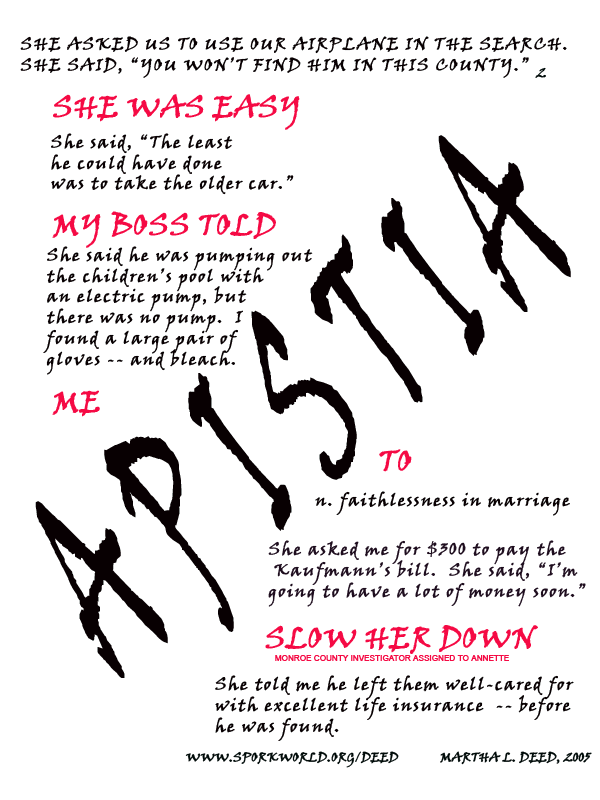 SHE ASKED US TO USE OUR AIRPLANE IN THE SEARCH.
SHE SAID, “YOU WON’T FIND HIM IN THIS COUNTY.” 2
SHE WAS EASY
She said, “The least
he could have done
was to take the older car.”
MY BOSS TOLD
She said he was pumping out
the children’s pool with
an electric pump, but
there was no pump. I
found a large pair of
gloves -- and bleach.
ME
APISTIA
TO
n. faithlessness in marriage
She asked me for $300 to pay the
Kaufmann’s bill. She said, “I’m
going to have a lot of money soon.”
SLOW HER DOWN
MONROE COUNTY INVESTIGATOR ASSIGNED TO ANNETTE
She told me he left them well-cared for
with excellent life insurance -- before
he was found.
WWW.SPORKWORLD.ORG/DEED MARTHA L. DEED, 2005